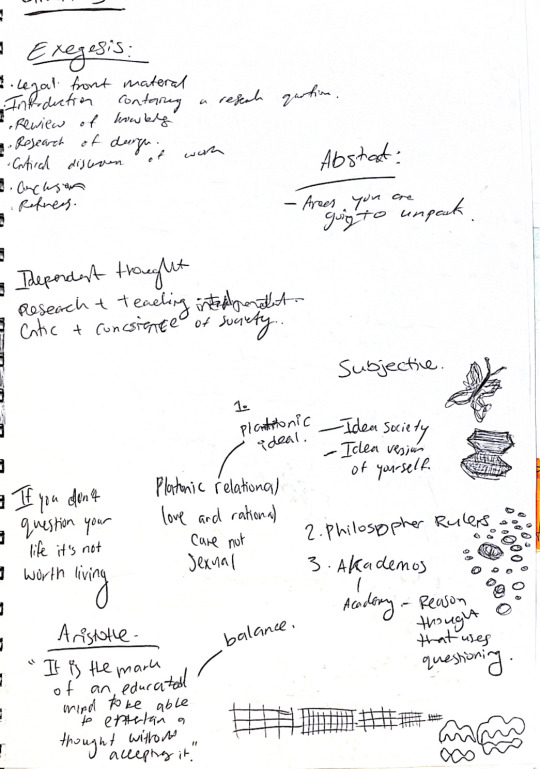 Exegesis:
• Legal front material
Introduction containing a research question.
• Review of knowledge
• Research of design.
• Critical discussion of work
• Conclusion
• Refrences.
Abstract:
– Areas you are
going to unpack.
Idependent thought
Research + teaching
Critic + concsience of society.
Subjective.
1.
Platonic
ideal.
– Idea society
– Idea version
of yourself.
Platonic relational
love and rational
care not
Sexual
If you don't
question your
life it's not
worth living
2. Philosopher Rulers
3. Akademos
Academy – Reason
thought
that uses
questioning.
Aristotle.
balance.
"It is the mark
of an educated
mind to be able
to entertain a
thought without
accepting it."